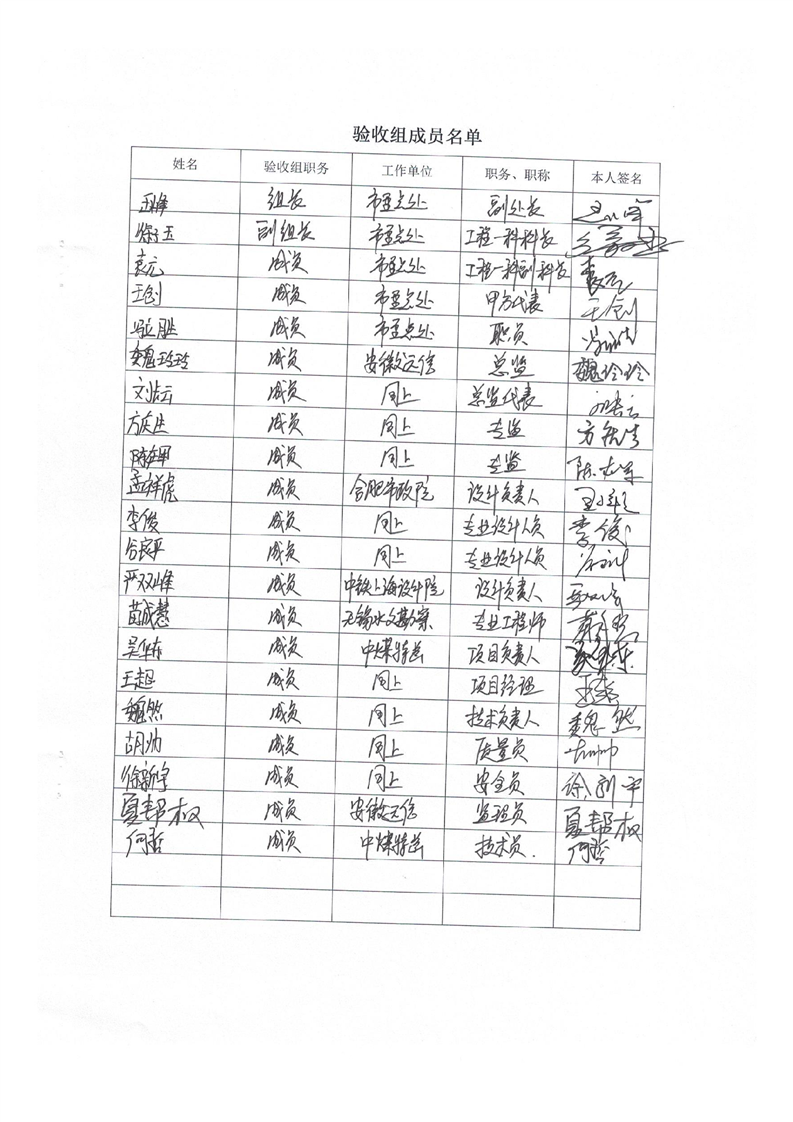 验收组成员名单
姓名 验收组职务 工作单位 职务、职称 本人签名
组长 市重点处 副处长
副组长 市重点处 工程一科科长
袁亢 成员 市重点处 工程一科副科长
王创 成员 市重点处 甲方代表 王创
成员 市重点处 职员
魏玲玲 成员 安徽远信 总监 魏玲玲
成员 同上 总监代表
成员 同上 专监
成员 同上 专监
孟祥虎 成员 合肥市政院 设计负责人
李俊 成员 同上 专业设计人员 李俊
成员 同上 专业设计人员
严双峰 成员 中铁上海设计院 设计负责人
苗成慧 成员 专业工程师
吴华东 成员 中煤特凿 项目负责人 吴华东
王超 成员 同上 项目经理 王超
魏然 成员 同上 技术负责人 魏然
胡帅 成员 同上 质量员 胡帅
徐新宇 成员 同上 安全员
夏帮权 成员 安徽远信 监理员 夏帮权
何哲 成员 中煤特凿 技术员. 何哲